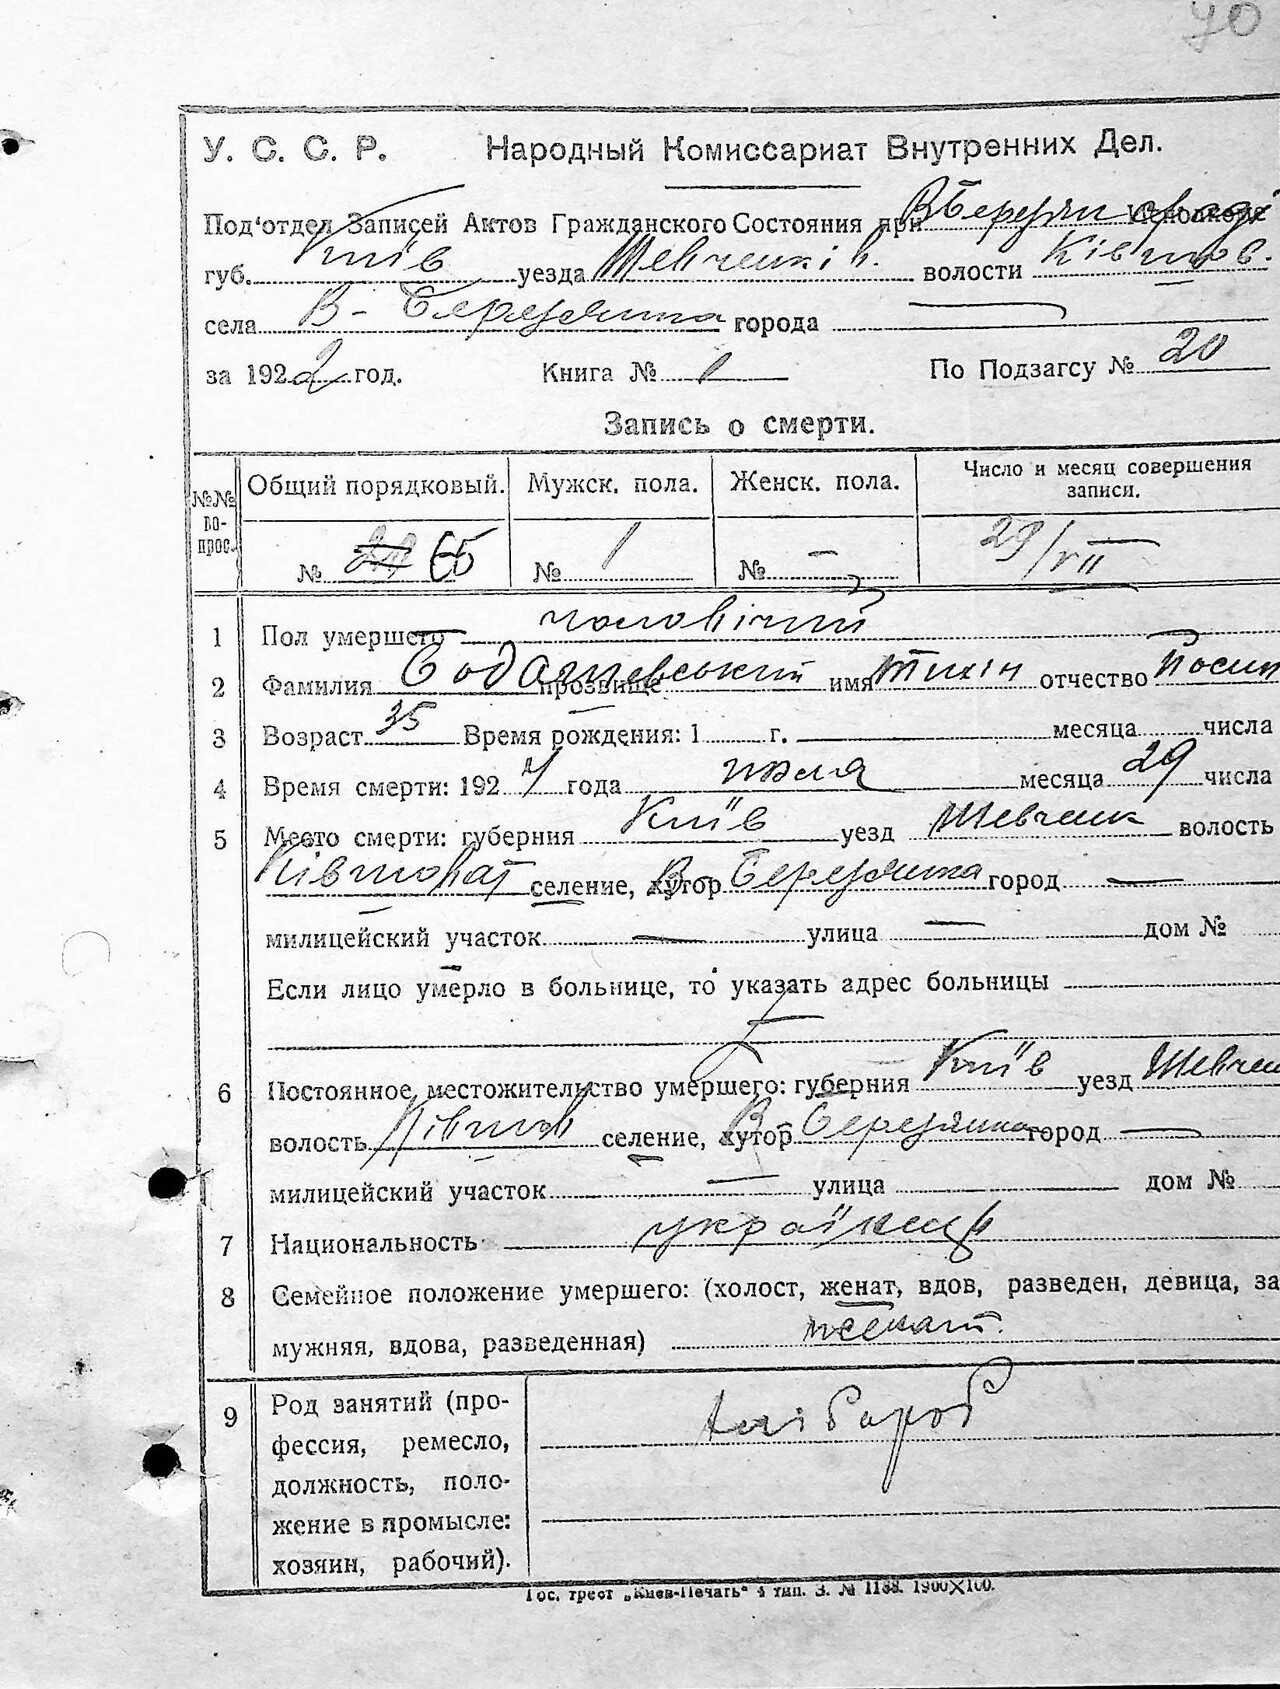 70
У. С. С. Р. Народный Комиссариат Внутренних Дел.
Под'отдел Записей Актов Гражданского Состояния при Исполкоме
губ. Київ уезда Шевченків. волости
села В-Березянка города —
за 1922 год. Книга № 1 По Подзагсу № 20
Запись о смерти.
№№ вопрос. Общий порядковый. Мужск. пола. Женск. пола. Число и месяц совершения записи.
№ 65 № 1 № — 29/VII
1 Пол умершего чоловічий
2 Фамилия прозвище имя отчество
3 Возраст 35 Время рождения: 1 г. — месяца числа
4 Время смерти: 192 года июля месяца 29 числа
5 Место смерти: губерния Київ уезд Шевченк волость
селение, хутор В-Березянка город —
милицейский участок — улица — дом №
Если лицо умерло в больнице, то указать адрес больницы
6 Постоянное местожительство умершего: губерния Київ уезд Шевчен
волость селение, хутор В-Березянка город —
милицейский участок — улица дом №
7 Национальность українець
8 Семейное положение умершего: (холост, женат, вдов, разведен, девица, за
мужняя, вдова, разведенная) женат.
9 Род занятий (про-
фессия, ремесло,
должность, поло-
жение в промысле:
хозяин, рабочий).
хлібороб
Гос. трест „Киев-Печать" 4 тип. З. № 1188. 1900X100.